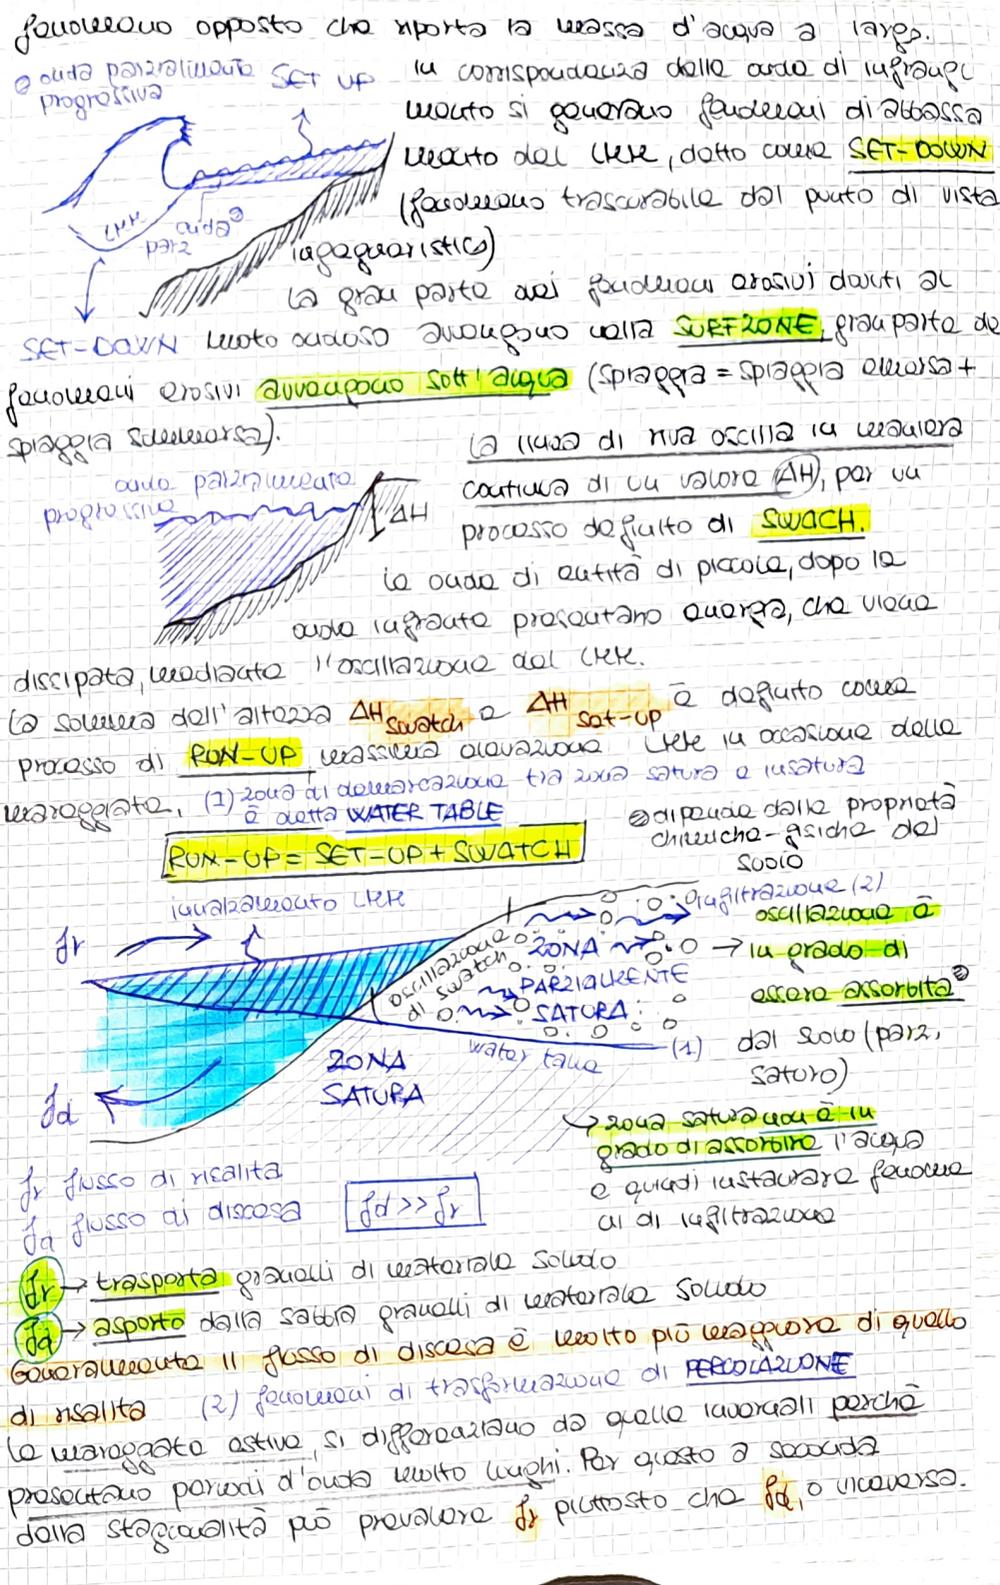 fenomeno opposto che riporta la massa d'acqua a largo.
onda parzialmente
progressiva
SET UP
In corrispondenza delle onde di infrangi
mento si generano fenomeni di abbassa
mento del LMM, detto come SET-DOWN
(fenomeno trascurabile dal punto di vista
ingegneristico)
SET-DOWN
La gran parte dei fenomeni erosivi dovuti al
moto ondoso avvengono nella SURFZONE, gran parte de
fenomeni erosivi avvengono sott'acqua (spiaggia = spiaggia emersa +
spiaggia sommersa).
onda parzialmente
progressiva
ΔH
La linea di riva oscilla in maniera
continua di un valore ΔH, per un
processo definito di SWACH.
Le onde di entità di piccole, dopo le
onde infrante presentano energia, che viene
dissipata, mediante l'oscillazione del LMM.
La somma dell'altezza ΔH swatch e ΔH set-up è definito come
processo di RUN-UP, massima elevazione LMM in occasione delle
mareggiate.
(1) zona di demarcazione tra zona satura e insatura
è detta WATER TABLE
RUN-UP = SET-UP + SWATCH
dipende dalle proprietà
chimiche-fisiche del
suolo
innalzamento LMM
fr
oscillazione
di swatch
ZONA
PARZIALMENTE
SATURA
infiltrazione (2)
oscillazione è
in grado di
essere assorbita
dal suolo (parz.
saturo)
(1)
ZONA
SATURA
fd
zona satura non è in
grado di assorbire l'acqua
e quindi instaurare fenome
ni di infiltrazione
fr flusso di risalita
fd flusso di discesa
fd >> fr
fr → trasporta granelli di materiale solido
fd → asporto dalla sabbia granelli di materiale solido
Generalmente il flusso di discesa è molto più maggiore di quello
di risalita
(2) fenomeni di trasformazione di PERCOLAZIONE
Le mareggiate estive, si differenziano da quelle invernali perchè
presentano periodi d'onda molto lunghi. Per questo a seconda
della stagionalità può prevalere fr piuttosto che fd, o viceversa.